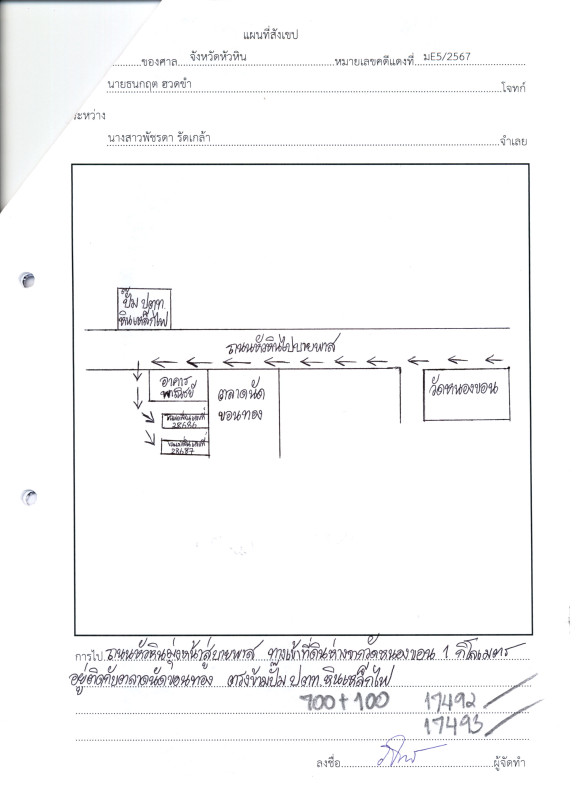 แผนที่สังเขป
ของศาล จังหวัดหัวหิน หมายเลขคดีแดงที่ มE5/2567
นายธนกฤต ฮวดขำ โจทก์
ระหว่าง
นางสาวพัชรดา รัดเกล้า จำเลย
ปั๊ม ปตท.
หินเหล็กไฟ
ถนนหัวหินไปบายพาส
อาคาร
พาณิชย์
ตลาดนัด
ขอนทอง
วัดหนองขอน
28686
28687
การไป ถนนหัวหินมุ่งหน้าสู่บายพาส ทางเข้าที่ดินห่างจากวัดหนองขอน 1 กิโลเมตร
อยู่ติดกับตลาดนัดขอนทอง ตรงข้ามปั๊ม ปตท.หินเหล็กไฟ
700+100 17492
17493
ลงชื่อ ผู้จัดทำ